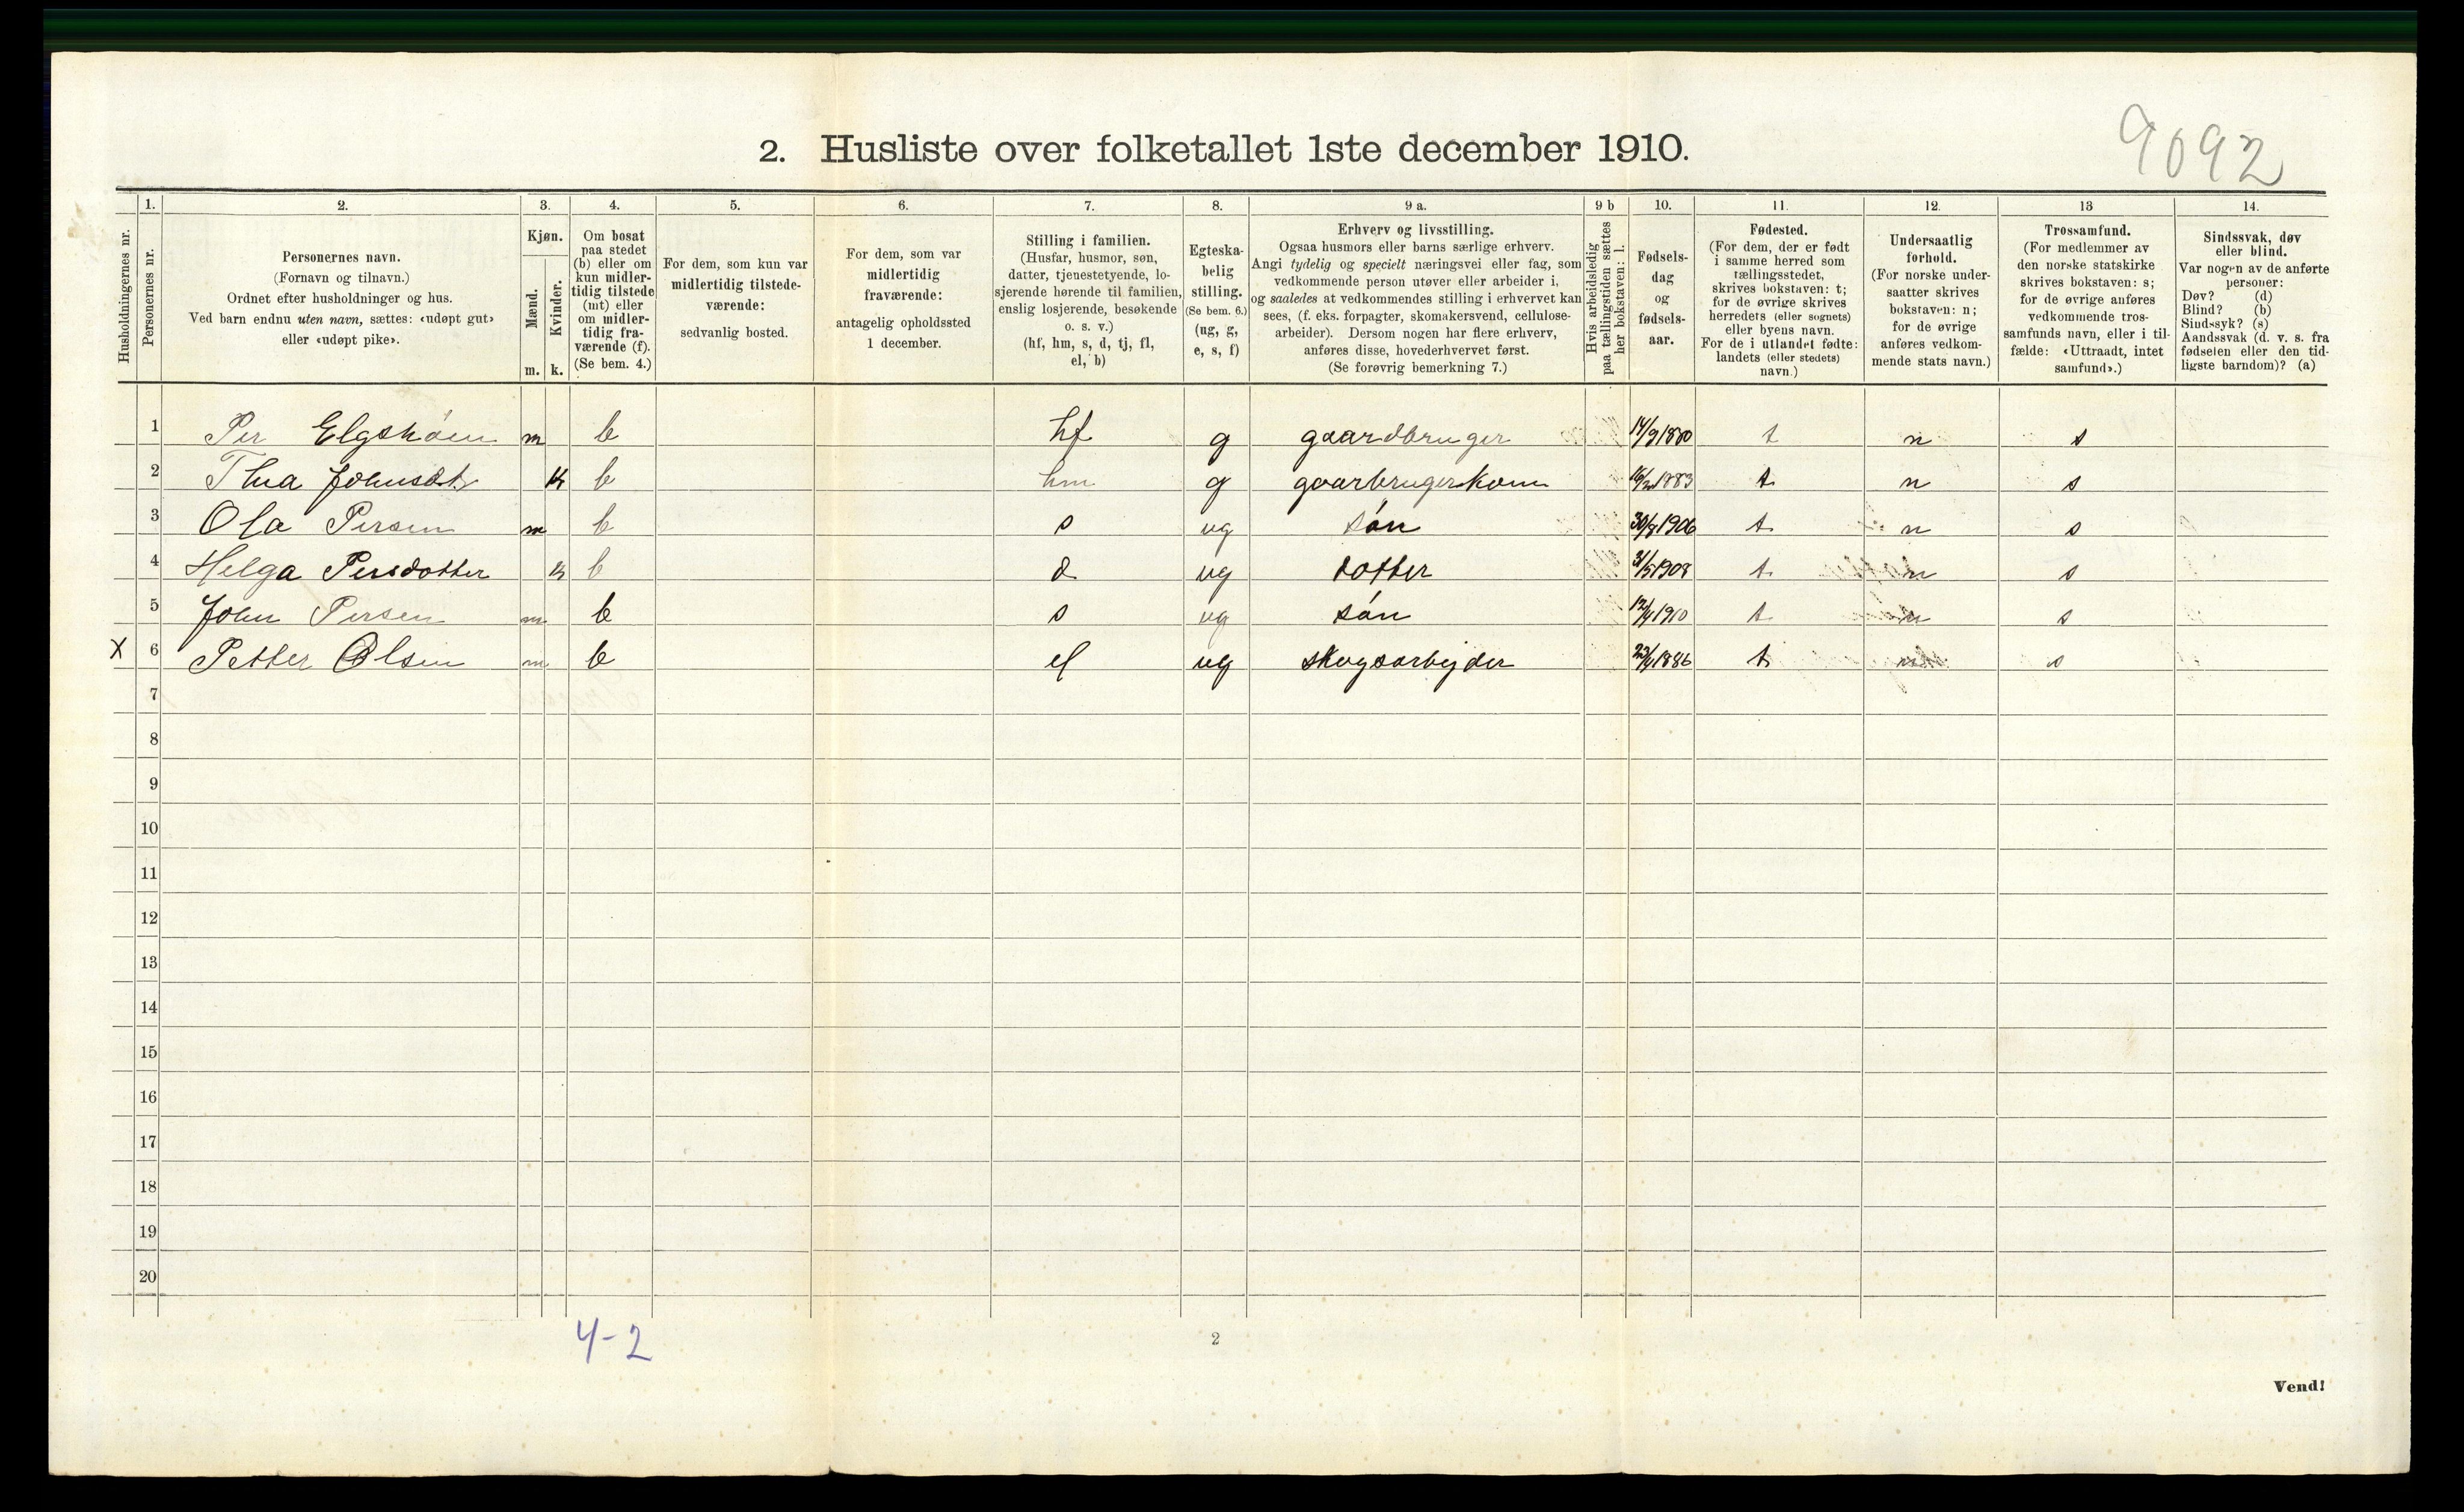 9092
2. Husliste over folketallet 1ste december 1910.
Husholdningernes nr.
1. Personernes nr.
2. Personernes navn. (Fornavn og tilnavn.) Ordnet efter husholdninger og hus. Ved barn endnu uten navn, sættes: «udøpt gut» eller «udøpt pike».
3. Kjøn. Mænd. Kvinder. m. k.
4. Om bosat paa stedet (b) eller om kun midlertidig tilstede (mt) eller om midlertidig fraværende (f). (Se bem. 4.)
5. For dem, som kun var midlertidig tilstedeværende: sedvanlig bosted.
6. For dem, som var midlertidig fraværende: antagelig opholdssted 1 december.
7. Stilling i familien. (Husfar, husmor, søn, datter, tjenestetyende, losjerende hørende til familien, enslig losjerende, besøkende o. s. v.) (hf, hm, s, d, tj, fl, el, b)
8. Egteskabelig stilling. (Se bem. 6.) (ug, g, e, s, f)
9 a. Erhverv og livsstilling. Ogsaa husmors eller barns særlige erhverv. Angi tydelig og specielt næringsvei eller fag, som vedkommende person utøver eller arbeider i, og saaledes at vedkommendes stilling i erhvervet kan sees, (f. eks. forpagter, skomakersvend, cellulosearbeider). Dersom nogen har flere erhverv, anføres disse, hovederhvervet først. (Se forøvrig bemerkning 7.)
9 b Hvis arbeidsledig paa tællingstiden sættes her bokstaven: l.
10. Fødselsdag og fødselsaar.
11. Fødested. (For dem, der er født i samme herred som tællingsstedet, skrives bokstaven: t; for de øvrige skrives herredets (eller sognets) eller byens navn. For de i utlandet fødte: landets (eller stedets) navn.)
12. Undersaatlig forhold. (For norske undersaatter skrives bokstaven: n; for de øvrige anføres vedkommende stats navn.)
13 Trossamfund. (For medlemmer av den norske statskirke skrives bokstaven: s; for de øvrige anføres vedkommende trossamfunds navn, eller i tilfælde: «Uttraadt, intet samfund».)
14. Sindssvak, døv eller blind. Var nogen av de anførte personer: Døv? (d) Blind? (b) Sindssyk? (s) Aandssvak (d. v. s. fra fødselen eller den tidligste barndom)? (a)
1 Per Elgshøen m b hf g gaardbruger 14/9 1880 t n s
2 Thea Johnsdt. k b hm g gaarbrugerkone 1883 t n s
3 Ola Persen m b s ug søn 30/8 1906 t n s
4 Helga Persdotter k b d ug dotter 31/5 1908 t n s
5 John Persen m b s ug søn 12/4 1910 t n s
X 6 Petter Olsen m b el ug skogsarbejder 23/4 1886 t n s
7
8
9
10
11
12
13
14
15
16
17
18
19
20
4-2
2
Vend!